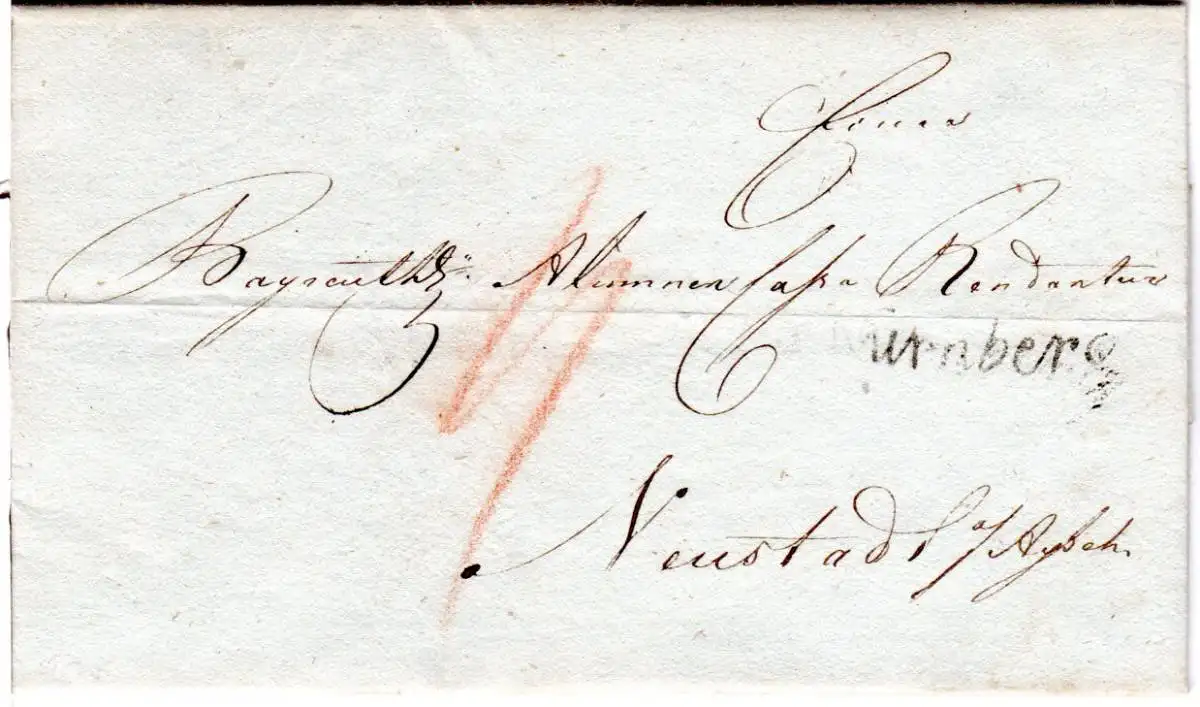 Einer
Bayreuth. Alumnen Cassa Rendantur
Nürnberg
Neustadt a/Aysch.